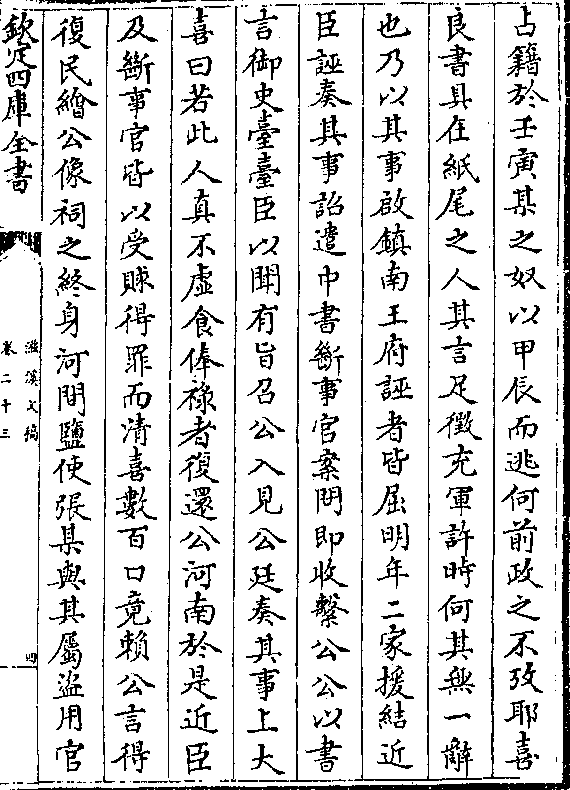 占籍於壬寅某之奴以甲辰而逃何前政之不攷耶喜
良書具在紙尾之人其言足徵充軍許時何其無一辭
也乃以其事啟鎮南王府誣者皆屈明年二家援結近
臣誣奏其事詔遣中書斷事官案問即收繫公公以書
言御史臺臺臣以聞有旨召公入見公廷奏其事上大
喜曰若此人真不虛食俸祿者復還公河南於是近臣
及斷事官皆以受賕得罪而清喜數百口竟賴公言得
復民繪公像祠之終身河間鹽使張某與其屬盜用官
欽定四庫全書
滋溪文稿
卷二十三
四